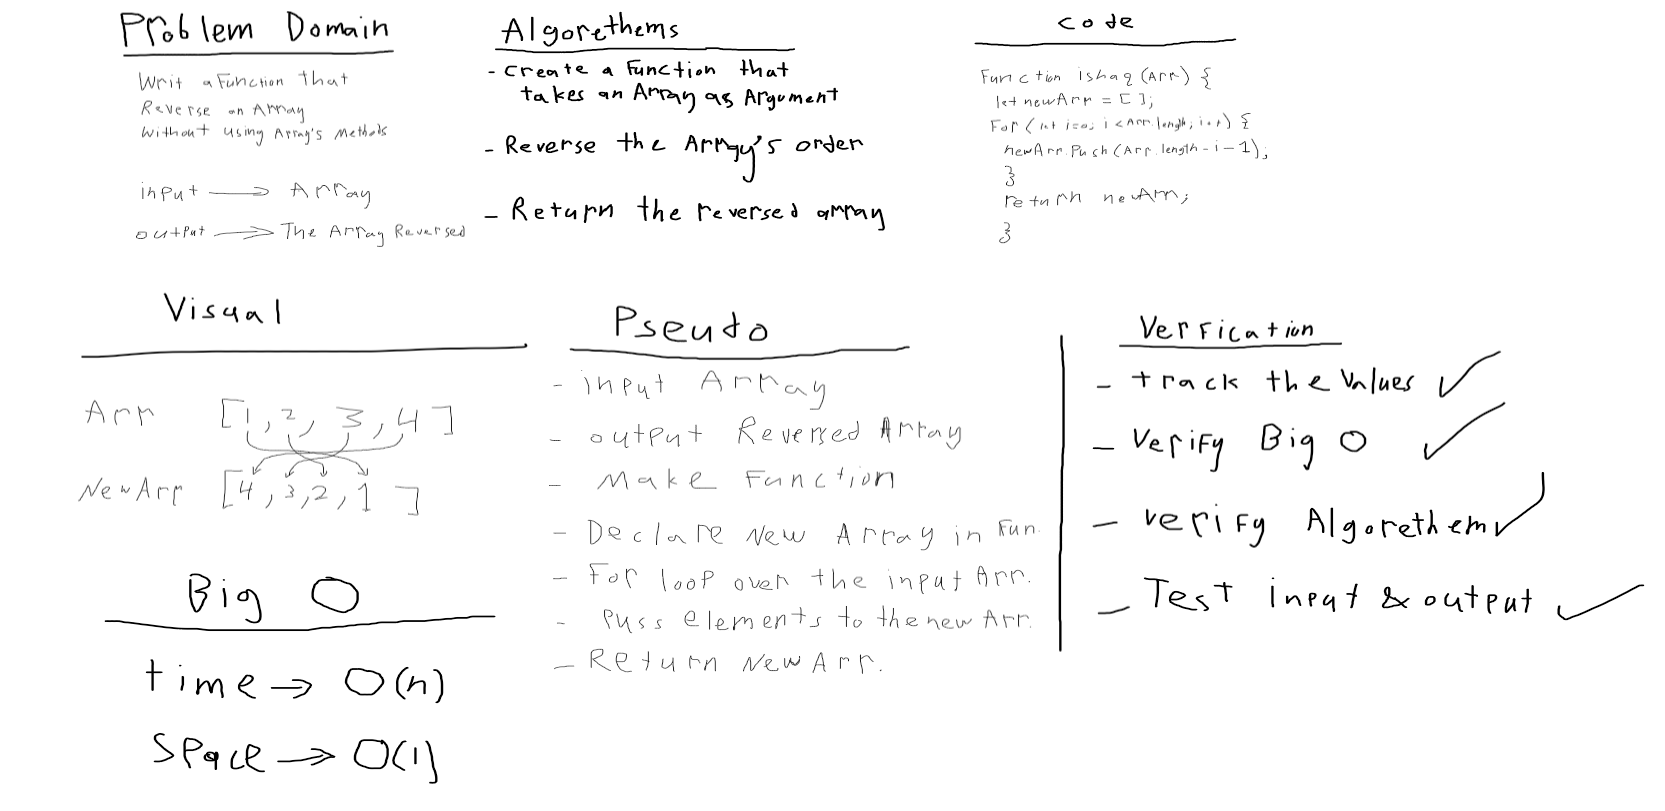 Problem Domain
Writ a Function that
Reverse an Array
Without using Array's Methods
input → Array
output → The Array Reversed
Algorethems
- Create a Function that
takes an Array as Argument
- Reverse the Array's order
- Return the reversed array
Code
Function ishaq (Arr) {
let newArr = [ ];
For (let i=0; i < Arr.length; i++) {
newArr.Push (Arr.length - i - 1);
}
return newArr;
}
Visual
Arr [1, 2, 3, 4]
NewArr [4, 3, 2, 1]
Big O
time → O(n)
Space → O(1)
Pseudo
- input Array
- output Reversed Array
- Make Function
- Declare New Array in Fun.
- For loop over the input Arr.
- Puss elements to the new Arr.
- Return New Arr.
Verfication
- track the Values ✓
- Verify Big O ✓
- verify Algorethem ✓
- Test input & output ✓